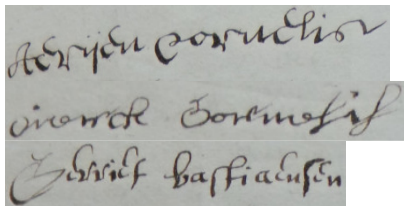 Aerijen Cornelis
Dierck Cornelis
Gerrit bastiaensen